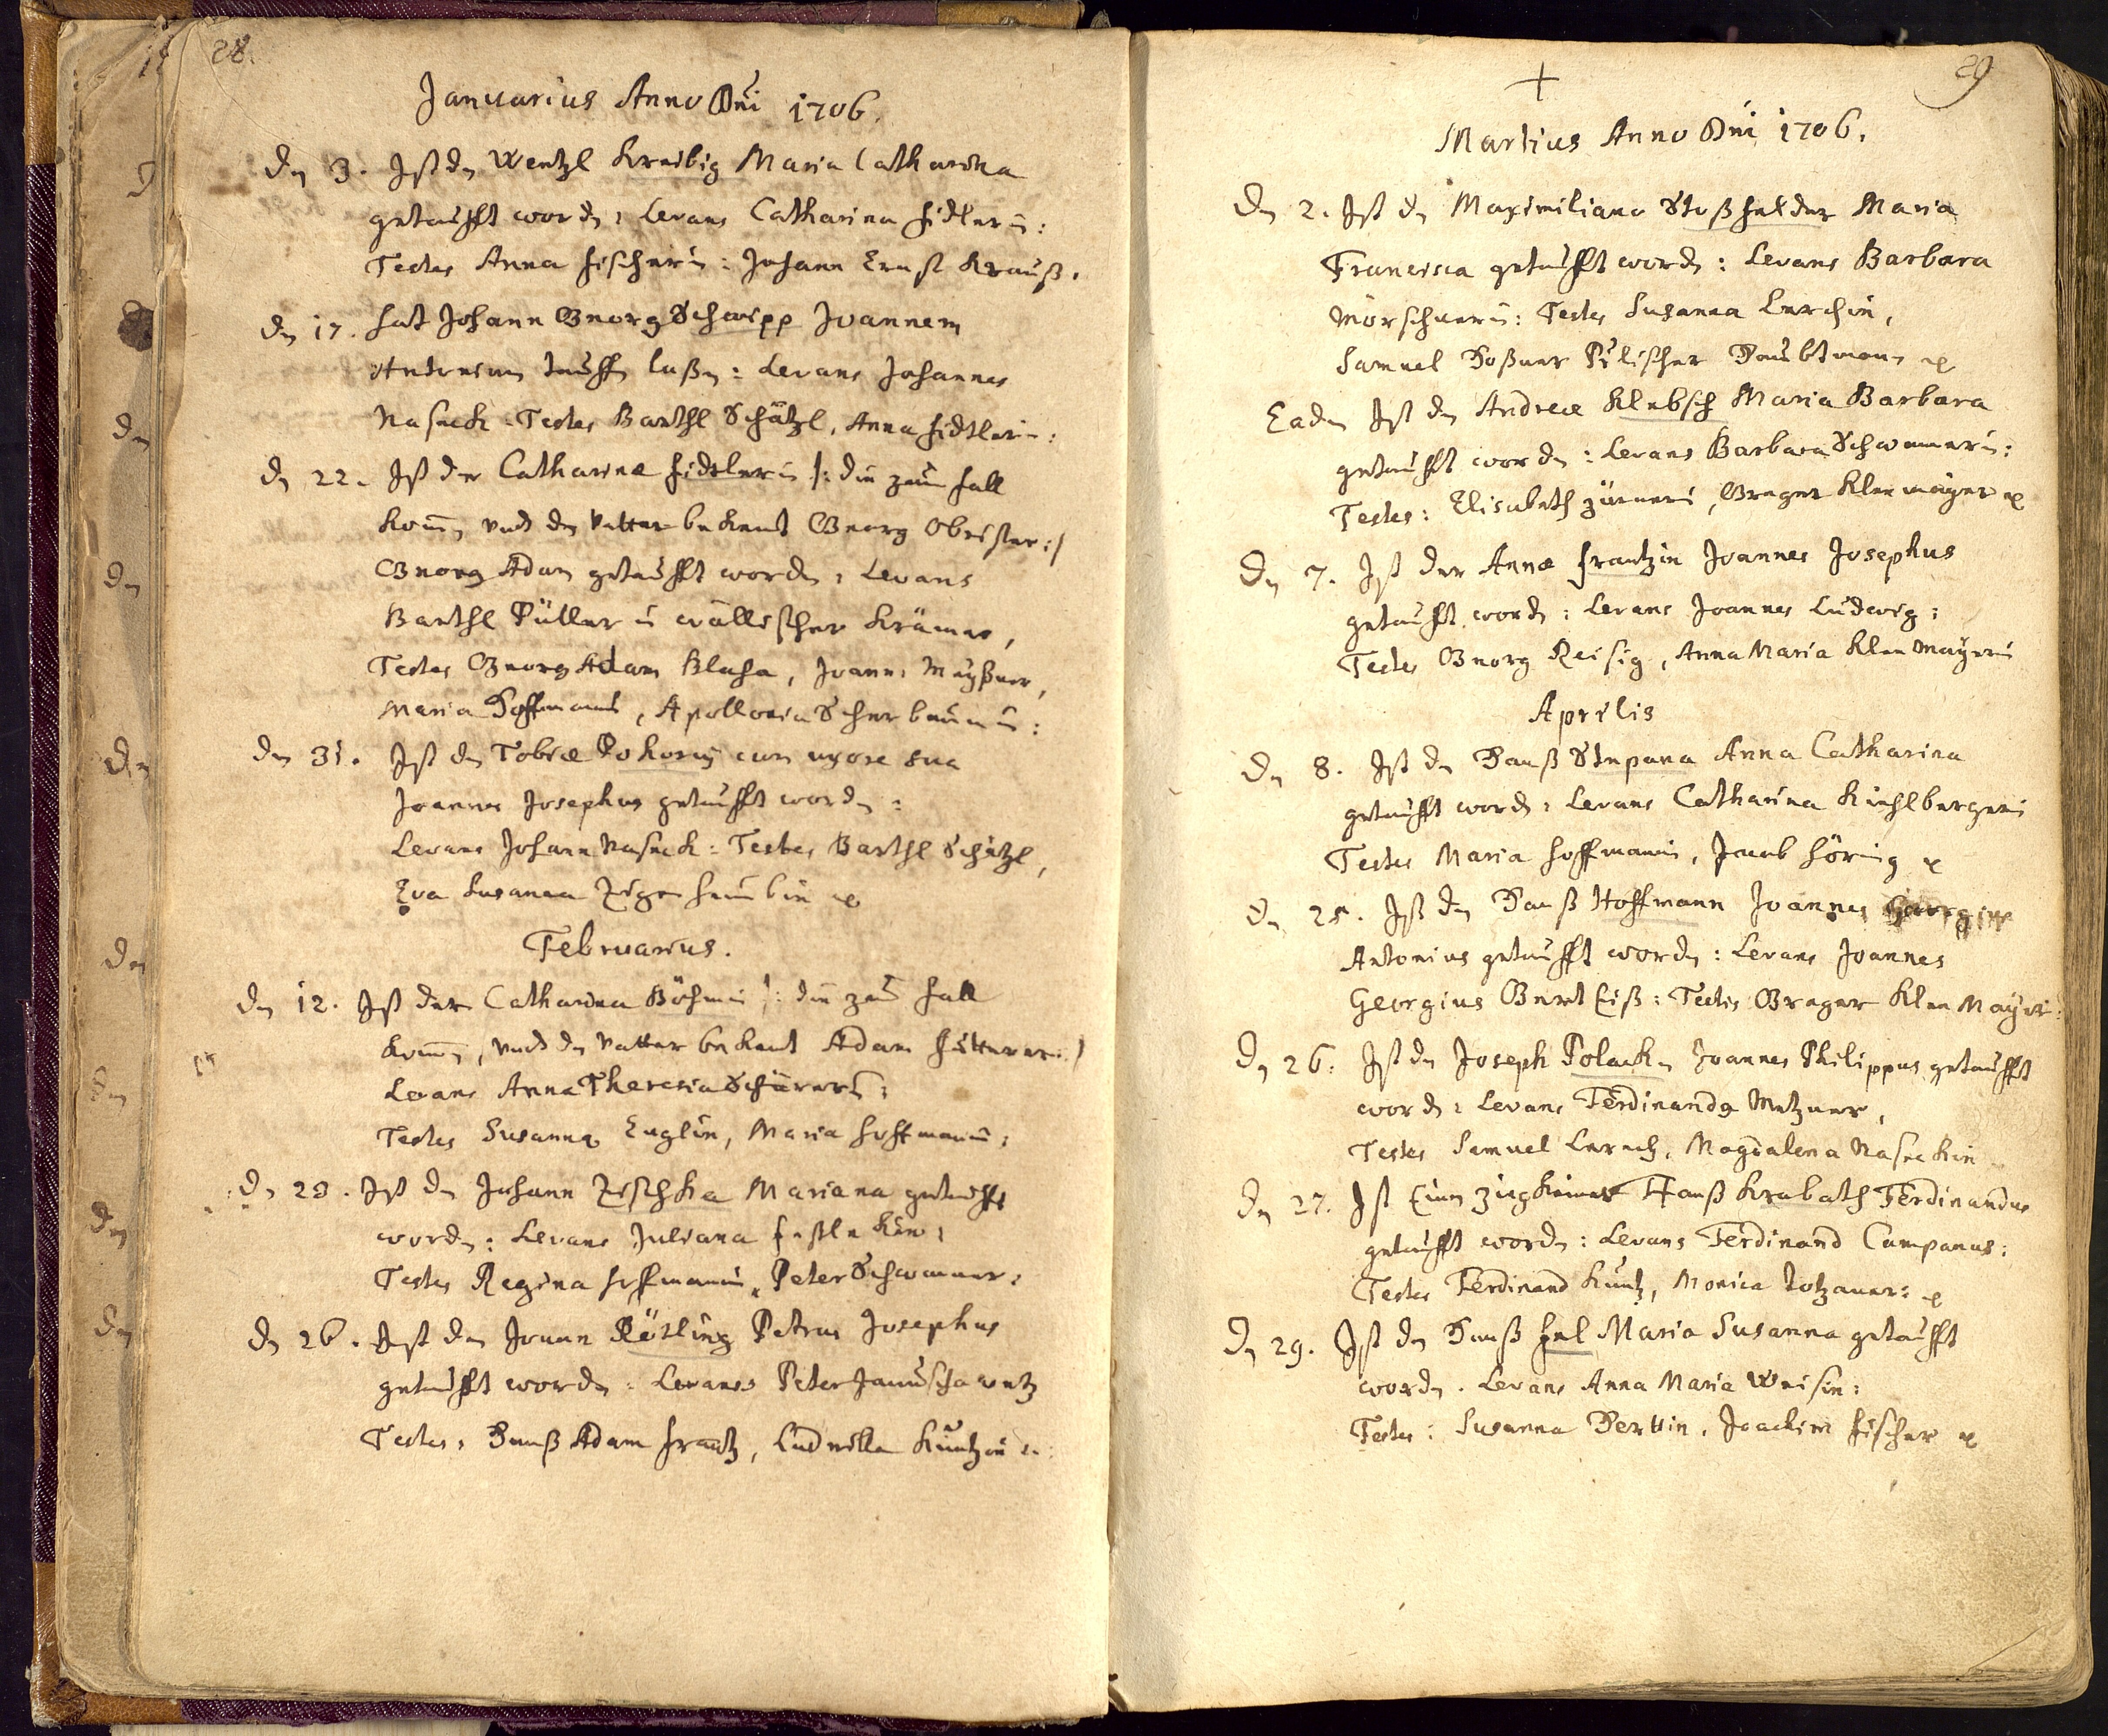 28.
Januarius Anno Dni 1706.
Dn 3. Ist dn Wentzl Kreibig Maria Catharina
getaufft wordn: Levans Catharina Fidlerin:
Testes Anna Fischerin: Johann Ernst Krauß.
dn 17. Hat Johann Georg Schwipp Joannem
Antonium tauffn laßn: Levans Johannes
Naseck: Testes Barthl Schätzl, Anna Fidtlerin:
dn 22. Ist der Catharinæ Fidtlerin /: die zum fall
komn, vnd dn vatter bekent Georg Obrister:/
Georg Adam getaufft wordn: Levans
Barthl Püller ein wällischer Krämer,
Testes Georg Adam Blaha, Joann: Meyßner,
Maria Hoffmanin, Apollonia Scherbaumin:
den 31. Ist dn Tobiæ Pokorny cum uxore sua
Joannes Josephus getaufft wordn:
Levans Johann Naseck: Testes Barthl Schätzl,
Eva Susanna
Februarius.
Dn 12. Ist der Catharina Böhmin /: die zum fall
komn, vnd dn vatter bekent Adam Fütterer:/
Levans Anna Theresia Schürerin:
Testes Susanna Englin, Maria Hoffmanin:
dn 23. Ist dn Johann Zischka Mariana getaufft
wordn: Levans Juliana
Testes Regina Hoffmanin, Peter Schwamer:
dn 26. Ist den Joann Rösling Petrus Josephus
getaufft wordn: Levans Peter Januschowetz
Testes: Hanß Adam Frantz, Ludmilla Kuntzin
29
Martius Anno Dni 1706.
Dn 2. Ist dn Maximiliano Stoßfelder Maria
Francisca getaufft wordn: Levans Barbara
Mörschnerin: Testes Susanna Lerchin,
Samuel Haßner Haubtman
Eadem Ist dn Andreæ Klebsch Maria Barbara
getaufft wordn: Levans Barbara Schwamerin:
Testes: Elisabeth Zürnerin, Greger Kleemayer
Dn 7. Ist der Annæ Frantzin Joannes Josephus
getaufft wordn: Levans Joannes Ludwig:
Testes Georg Reisig, Anna Maria Kleemayerin
Aprilis
Dn 8. Ist dn Hanß Stepana Anna Catharina
getaufft wordn: Levans Catharina Kieslbergerin
Testes Maria Hoffmanin, Jacob Höring
dn 25. Ist dn Hanß Hoffmann Joannes Georgius
Antonius getaufft wordn: Levans Joannes
Georgius Testis Greger Kleemayer:
Dn 26. Ist dn Joseph Polackn Joannes Philippus getaufft
wordn: Levans Ferdinand Metzner,
Testes Samuel Lerch, Magdalena Naseckin
Dn 27. Ist Einem Ziegheiner Hanß Krabath Ferdinandus
getaufft wordn: Levans Ferdinand Campanus:
Testes Ferdinand Kuntz, Monica
Dn 29. Ist dn Hanß Hel Maria Susanna getaufft
wordn. Levans Anna Maria Weisin:
Testes: Susanna Hertlin, Joachim Fischer